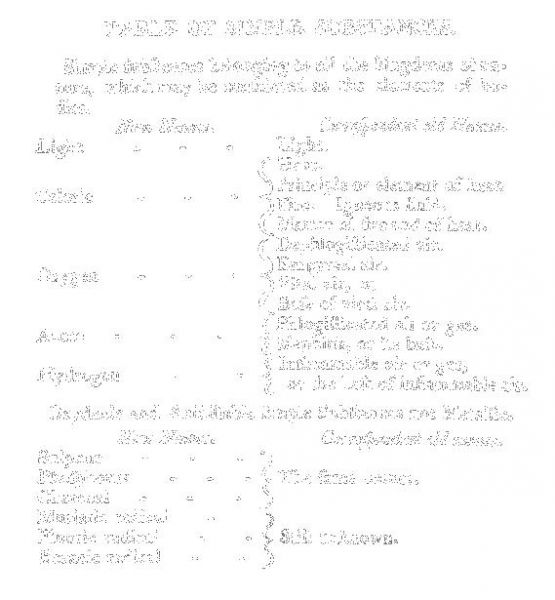 TABLE OF SIMPLE SUBSTANCES.
Simple substances belonging to all the kingdoms of na-
ture, which may be considered as the elements of bo-
dies.
New Names. Correspondent old Names.
Light - - - Light.
Heat.
Principle or element of heat.
Caloric - - - Fire. Igneous fluid.
Matter of fire and of heat.
Dephlogisticated air.
Empyreal air.
Oxygen - - - Vital air, or
Base of vital air.
Phlogisticated air or gas.
Azote - - - Mephitis, or its base.
Inflammable air or gas,
Hydrogen - - or the base of inflammable air.
Oxydable and Acidifiable simple Substances not Metallic.
New Names. Correspondent old names.
Sulphur - - -
Phosphorus - - - The same names.
Charcoal - - -
Muriatic radical -
Fluoric radical - - Still unknown.
Boracic radical - -